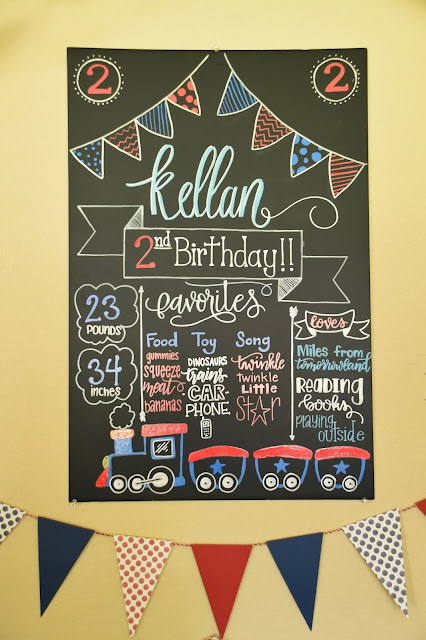 2
2
Kellan
2nd Birthday!!
favorites
23
POUNDS
34
inches
Food
gummies
squeeze
meat
bananas
Toy
DINOSAURS
trains
CAR
PHONE
Song
twinkle
twinkle
little
star
loves
Miles from
tomorrowland
READING
books
playing
outside